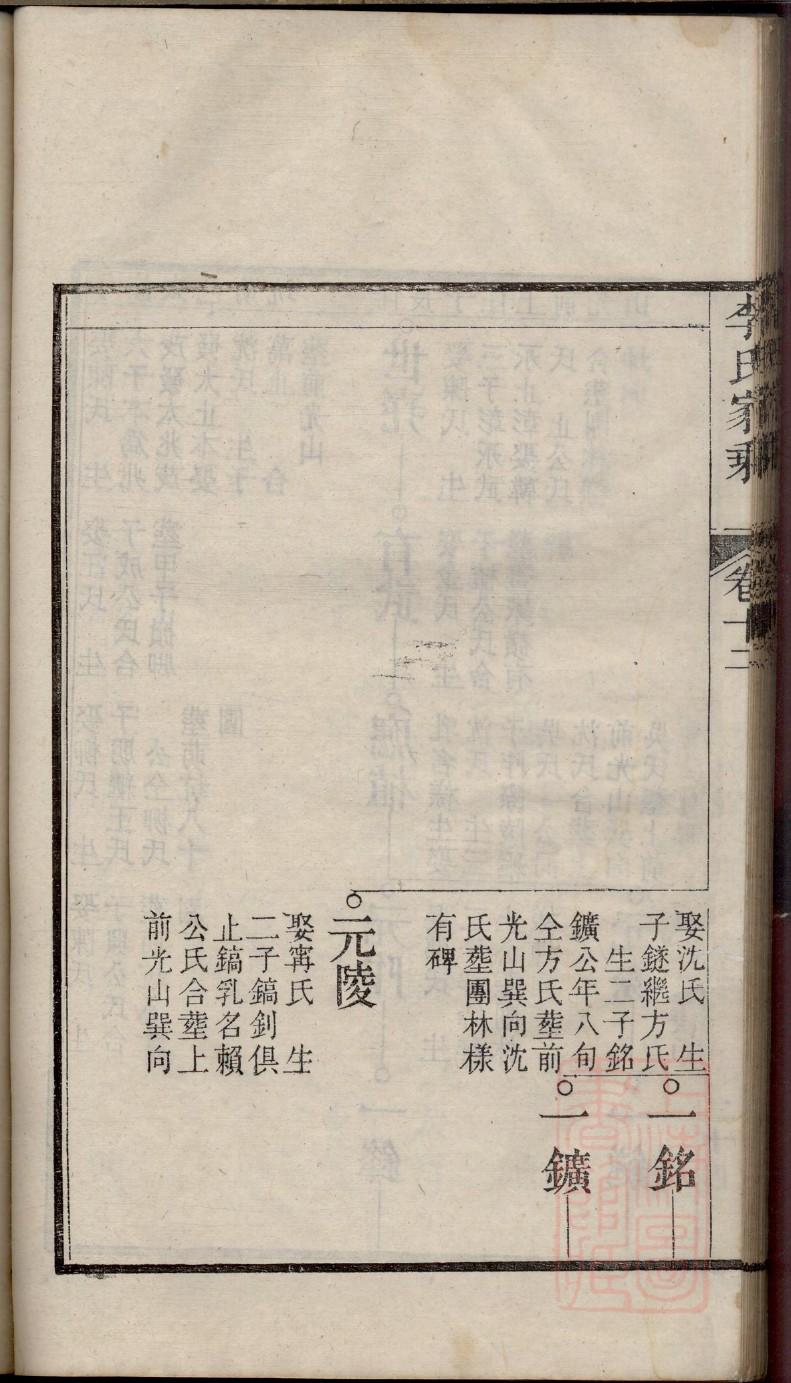 李氏家乘
卷十二
娶沈氏　生
子鐩繼方氏
生二子銘
鑛公年八旬
仝方氏塟前
光山巽向沈
氏塟團林樣
有碑
一銘
一鑛
元陵
娶甯氏　生
二子鎬釗俱
止鎬乳名賴
公氏合塟上
前光山巽向